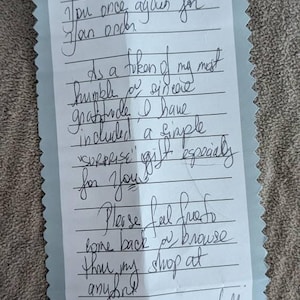 You once again for
your order
As a token of my most
humble & sincere
gratitude I have
included a simple
"surprise" gift especially
for You!
Please feel free to
come back & browse
thru my shop at
anytime